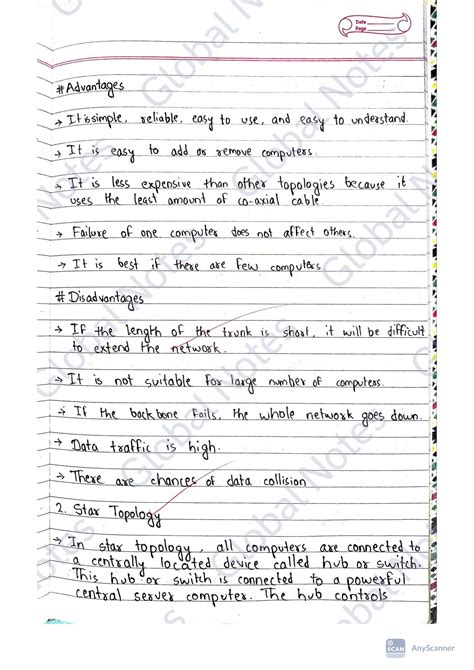 Date
Page
# Advantages
→ It is simple, reliable, easy to use, and easy to understand.
→ It is easy to add or remove computers.
→ It is less expensive than other topologies because it
uses the least amount of co-axial cable.
→ Failure of one computer does not affect others.
→ It is best if there are few computers.
# Disadvantages
→ If the length of the trunk is short, it will be difficult
to extend the network.
→ It is not suitable for large number of computers.
→ If the backbone fails, the whole network goes down.
→ Data traffic is high.
→ There are chances of data collision
2. Star Topology
→ In star topology, all computers are connected to
a centrally located device called hub or switch.
This hub or switch is connected to a powerful
central server computer. The hub controls
Global Notes
Global Notes
Global Notes
Global Notes
Global Notes
Global Notes
SCAN AnyScanner